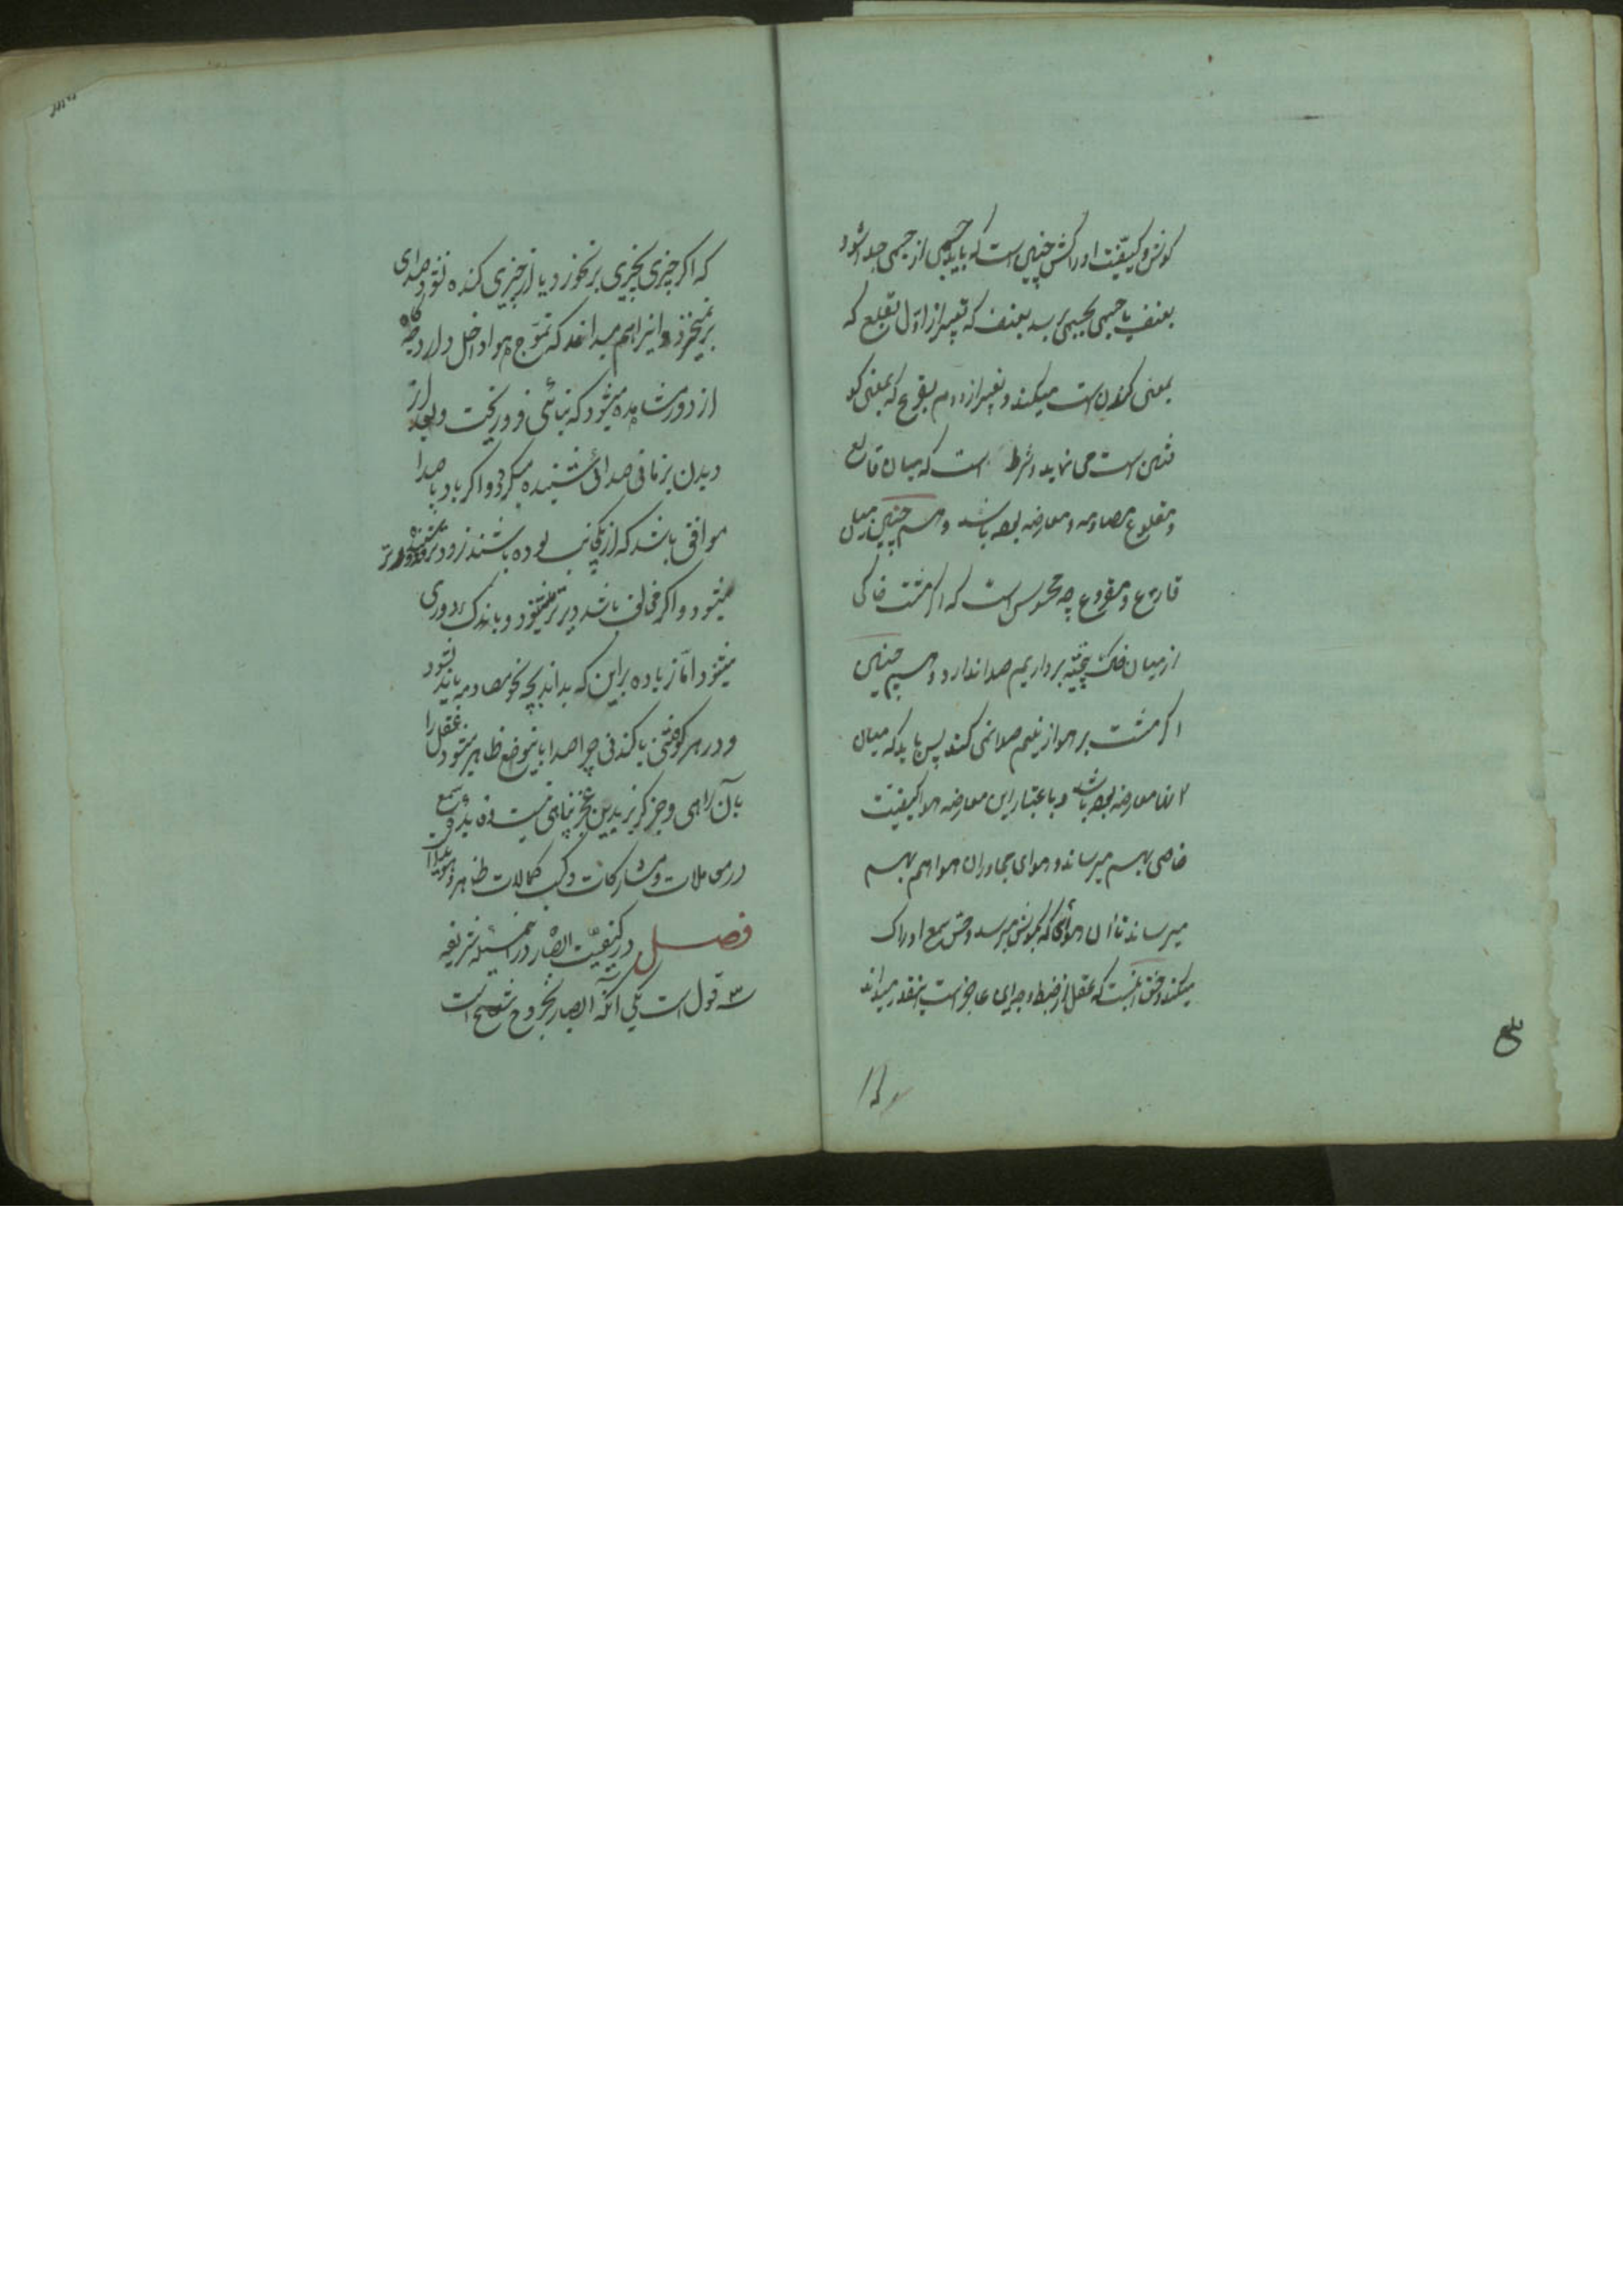 گوش و کیفیت ادراکش چنین است که باید جسمی از جسمی جدا شود
بعنف یا جسمی بجسمی برسد بعنف که تعبیر از اول بقلع که
بمعنی کندن است میکنند و تعبیر از دوم بقرع که بمعنی کو
فتن است می نماید و شرط است که میان قالع
و مقلوع مصادمه و معارضه بوده باشد و هم چنین میان
قارع و مقروع چه محسوس است که اگر مشت خاکی
از میان خاک بیخته برداریم صدا ندارد و هم چنین
اگر مشت بر هوا زنیم صدا نمی کند پس باید که میان
معارضه بوده باشد و باعتبار این معارضه هوا کیفیت
خاصی بهم میرساند و هوای مجاوران هوا هم بهم
میرساند تا ان هوائی که بگوش میرسد و حس سمع ادراک
میکند و حق اینست که عقل از ضبط و جرای عاجز است اینقدر میداند
بلغ
که اگر
که اگر چیزی بچیزی بر نخورد یا از چیزی کنده نشود صدای
بر نمیخیزد و اینرا هم میداند که تموج هوا دخل دارد چه گاه
از دور مشاهده میشود که بنائی فرو ریخت و بعد از
دیدن بزمانی صدائی شنیده میگردد و اگر باد با صدا
موافق باشد که از یکجانب بوده باشند زودتر و دورتر
میشود و اگر مخالف باشد دیرتر میشنود و باندک دوری
میشنود اما زیاده براین که بداند بچه نحو مصادمه باید بشود
و در هر کوفتنی یا کندنی چرا صدا باینوضع ظاهر میشود عقل را
بآن راهی و جز گریز بدین عجز پناهی نیست و فایده سمع
در معاملات و مشارکات و کسب کمالات ظاهر و هویداست
فصل در کیفیت ابصار در اینمسئله شریفه
سه قول است یکی آنکه ابصار بخروج شعاع است